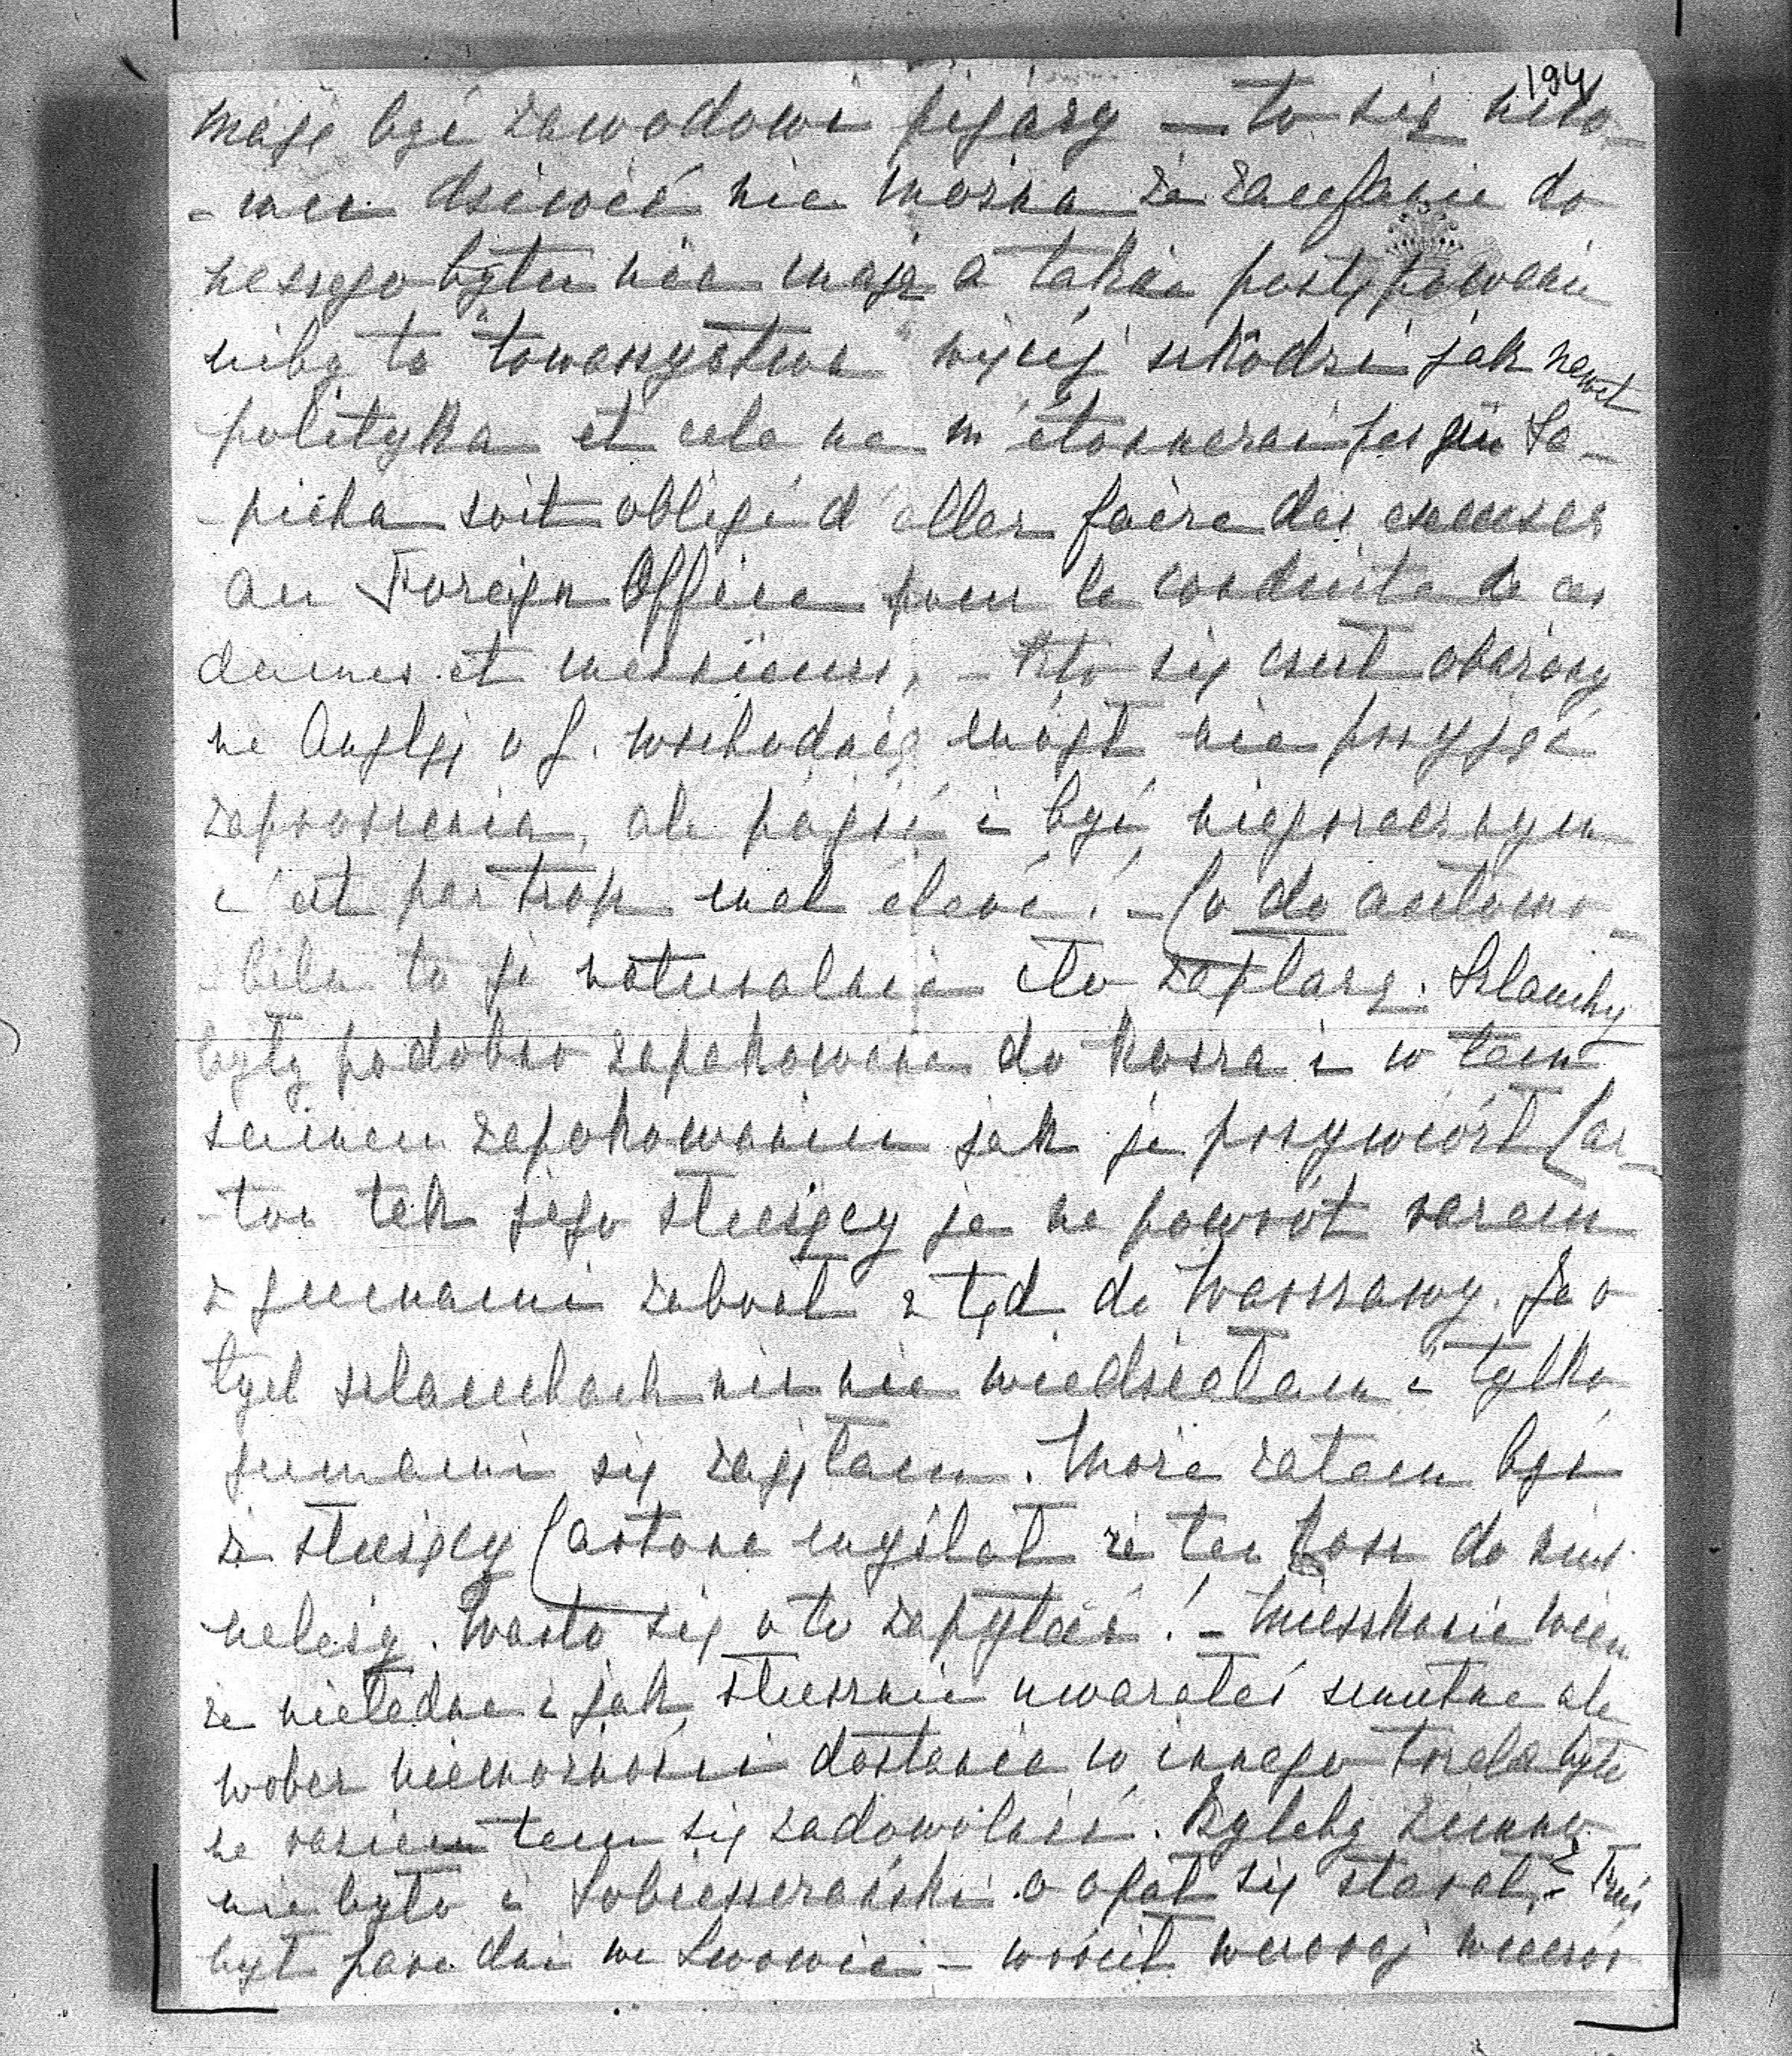 194
mają być zawodowi pijacy — to się niko-
-mu dziwić nie można że zaufanie do
naszego bytu nie mają a takie postępowanie
niby to "towarzystwa" więcej szkodzi jak nawet
polityka et cela ne m'étonnerai pas que Sa-
-pieha soit obligé d'aller faire des excuses
au Foreign Office pour la conduite de ces
dames et messieurs, - Kto się czuł obrażony
na Anglję o G. wschodnią mógł nie przyjąć
zaproszenia, ale pójść i być niegrzecznym
c'est par trop mal élevé! - Co do automo-
-bilu to je naturalnie ito zapłacę. Szlauchy
były podobno zapakowane do kosza i w tem
samem zapakowaniu jak je przywiózł Car-
-ton tak jego służący je na powrót razem
z gumami zabrał z tąd do Warszawy. Ja o
tych szlauchach nic nie wiedziałam i tylko
gumami się zajęłam. Może zatem być
że służący Cartona myślał że ten kosz do nich
należy. Warto się o to zapytać! - Mieszkanie wiem
że nieładne i jak słusznie uważałeś smutne ale
wobec niemożności dostania co innego trzeba było
na razie tem się zadowolnić. Byleby zimno
nie było i Sobieszczański o opał się starał. -
był parę dni we Lwowie - wrócił wczoraj wieczór